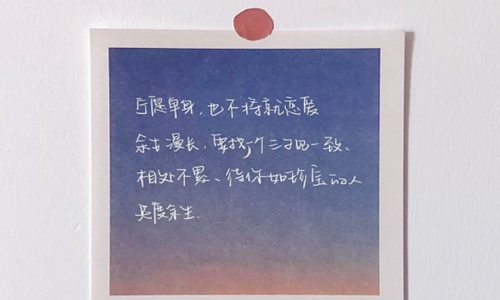 宁愿单身，也不将就恋爱
余生漫长，要找个三观一致、
相处不累、待你如珍宝的人
共度余生.